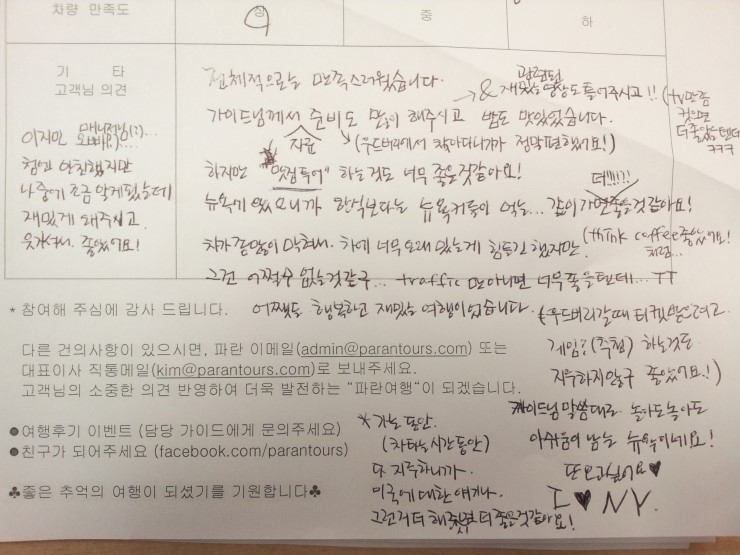 차량 만족도
상
중
하
기 타
고객님 의견
이지만 매니저님(?)...
오빠(?)...
첨엔 안친했지만
나중에 조금 알게됬는데
재밌게 해주시고
웃겨서 좋았어요!
전체적으로는 만족스러웠습니다.
& 관련된 재밌는 영상도 틀어주시고!! (tv만좀
컸으면
더좋았을텐데
ㅋㅋㅋ
가이드님께서 준비도 많이 해주시고 밥도 맛있었습니다.
지윤 (우드버리에서 찾아다니기가 정말편했어요!)
하지만 "맛집투어" 하는것도 너무 좋은것같아요!
뉴욕에 있으니까 한식보다는 뉴욕커들이 먹는... 같이 가면좋을것같아요!
더!!!!!
(think coffee좋았어요!
처럼...
차가 많이 막혀서. 차에 너무 오래 있는게 힘들긴 했지만.
그건 어쩔수 없는것같구... traffic 만아니면 너무좋을텐데... ㅠㅠ
* 참여해 주심에 감사 드립니다.
어쨌든 행복하고 재밌는 여행이었습니다.
(우드버리갈때 티켓받으려고
게임?(추첨) 하는것도
지루하지않구 좋았어요!)
다른 건의사항이 있으시면, 파란 이메일(admin@parantours.com) 또는
대표이사 직통메일(kim@parantours.com)로 보내주세요.
고객님의 소중한 의견 반영하여 더욱 발전하는 "파란여행"이 되겠습니다.
가이드님 말씀대로 놀아도놀아도
아쉬움이 남는 뉴욕이네요!
또오고싶어요♥
I ♥ NY.
●여행후기 이벤트 (담당 가이드에게 문의주세요)
●친구가 되어주세요 (facebook.com/parantours)
* 가는 동안.
(차타는시간동안)
다 지루하니까.
미국에 대한 얘기나.
그런거 더 해줬으면 더 좋을것같아요!
♣좋은 추억의 여행이 되셨기를 기원합니다♣